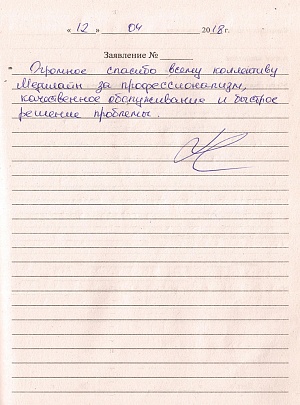 « 12 » 04 2018 г.
Заявление №
" Огромное спасибо всему коллективу
Медилайн за профессионализм,
качественное обслуживание и быстрое
решение проблемы.